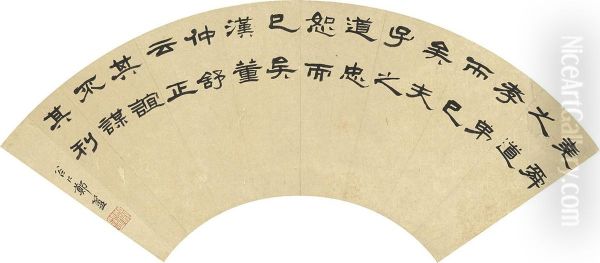 堯舜
之道
孝弟
而已
矣夫
子之
道忠
恕而
已矣
漢董
仲舒
云正
其誼
不謀
其利
谷口鄭簠
NiceArtGallery.com